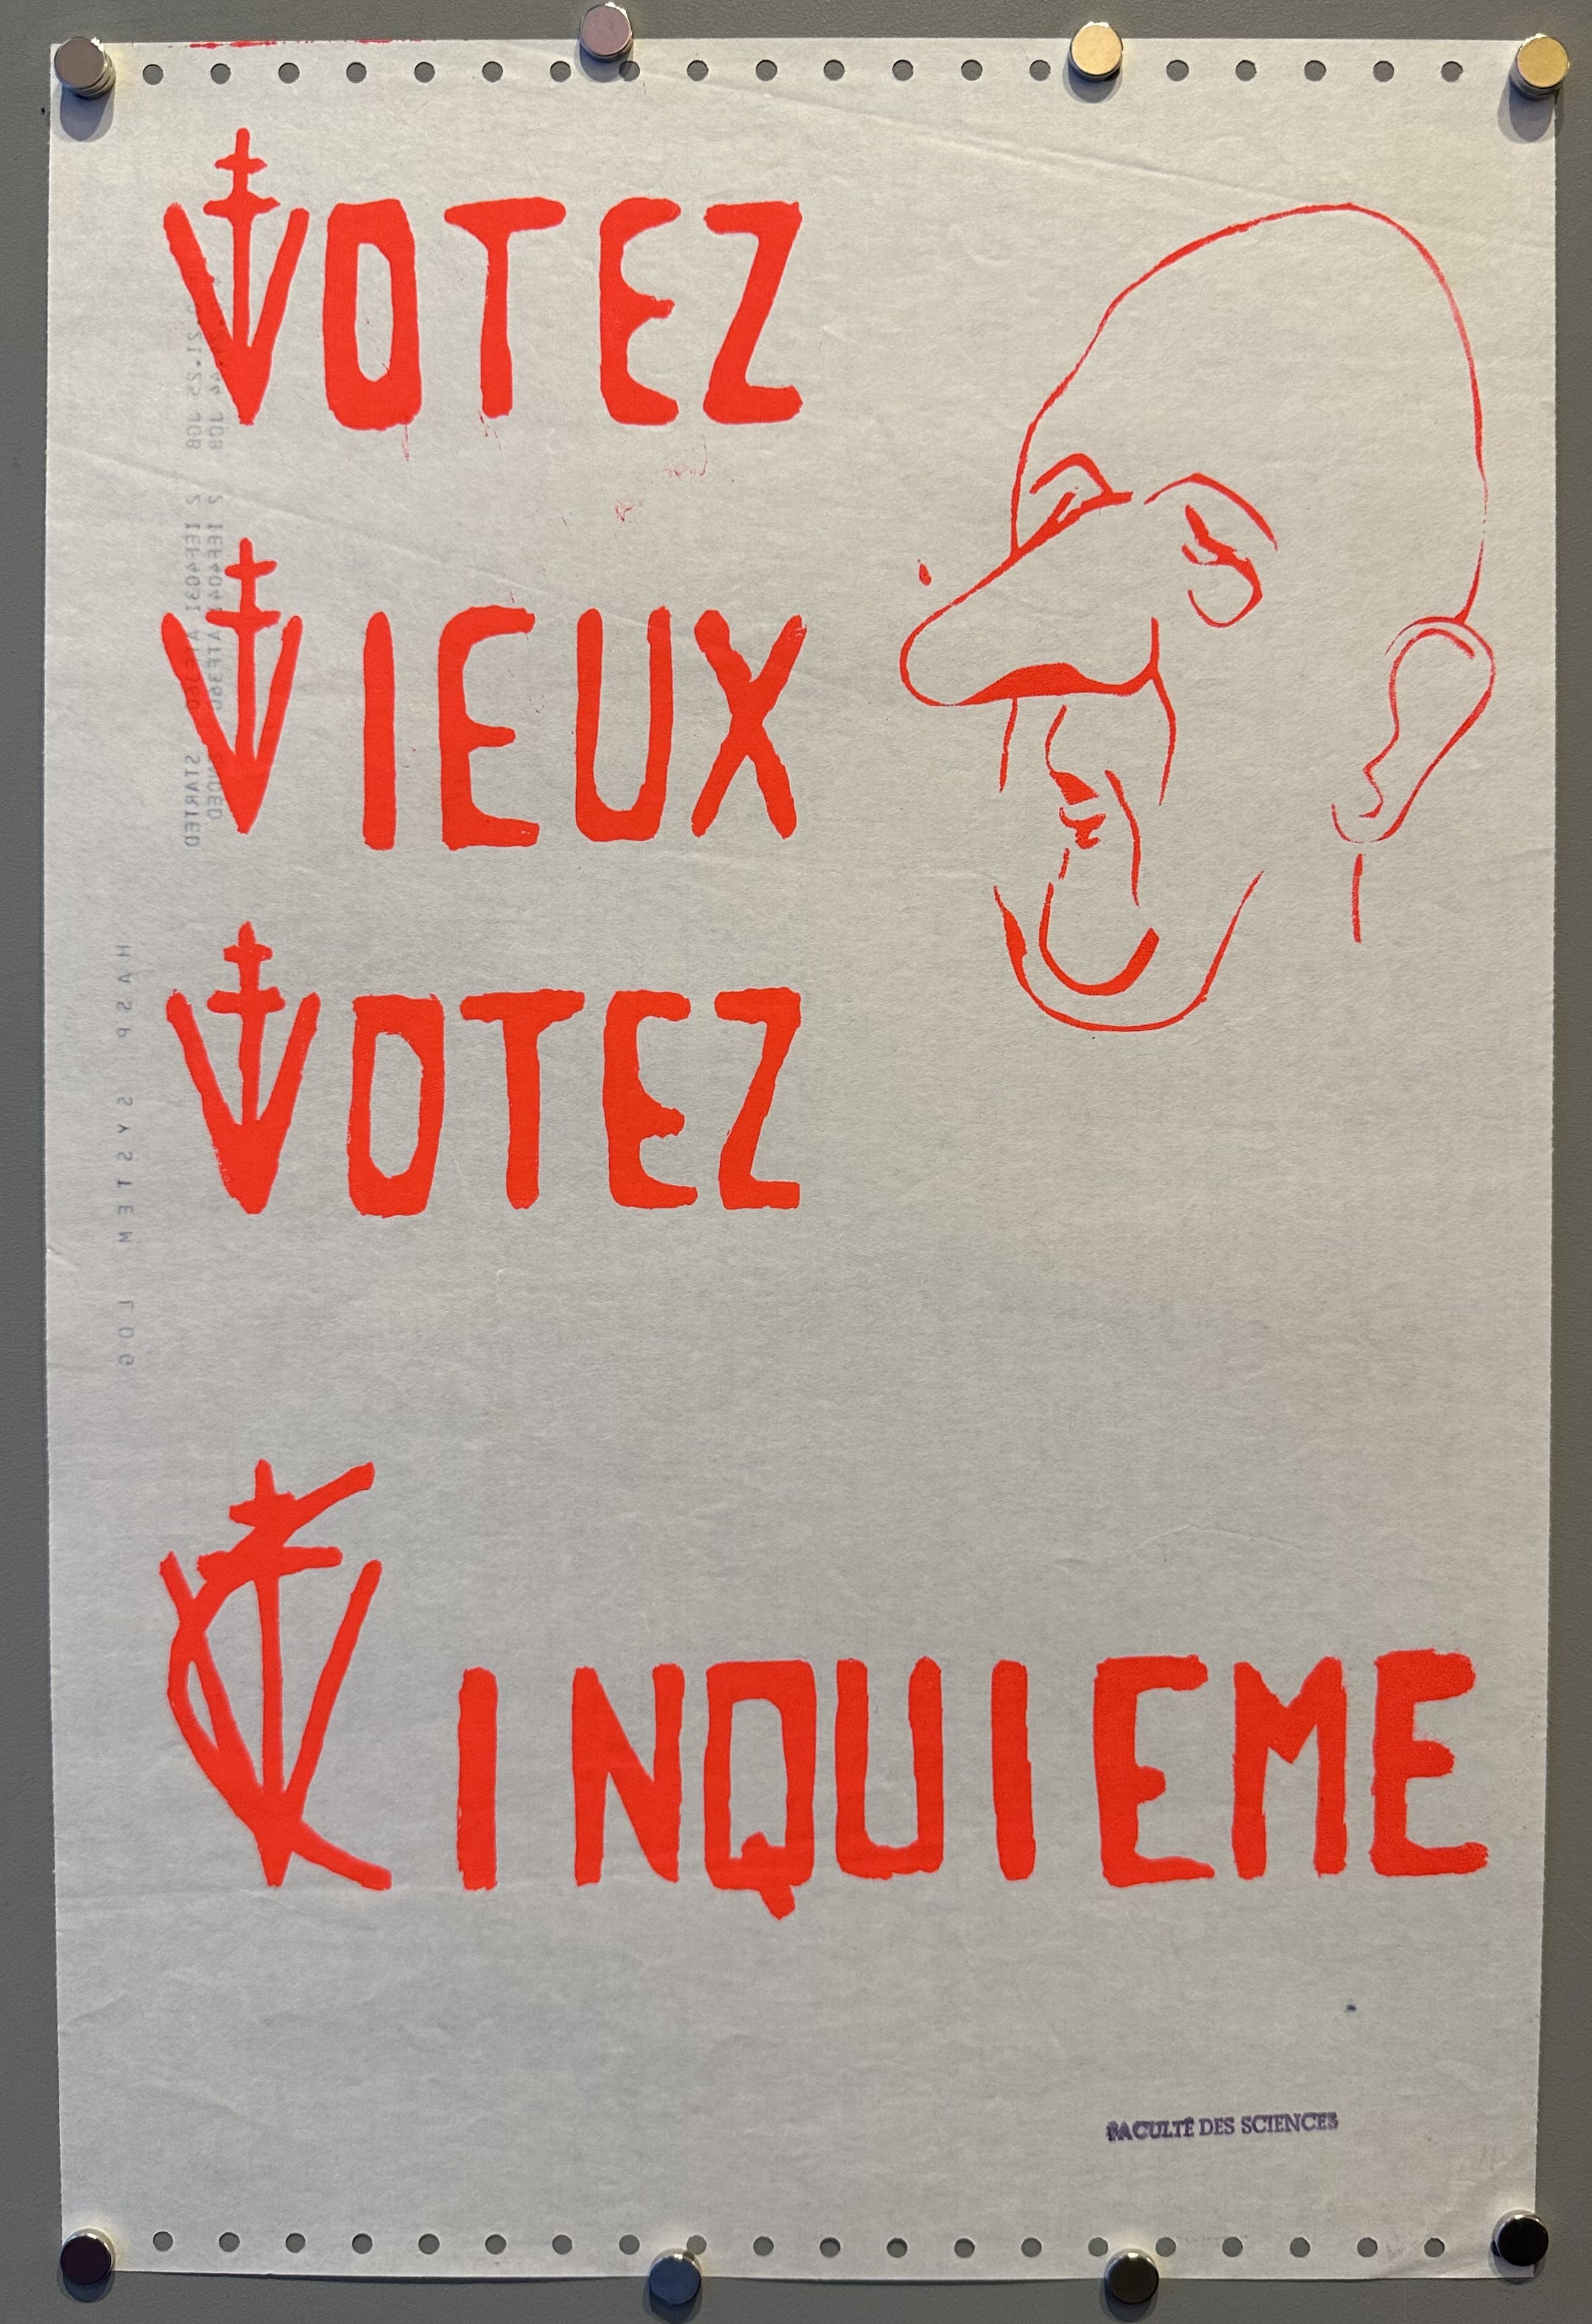 VOTEZ
VIEUX
VOTEZ
CINQUIEME
FACULTÉ DES SCIENCES
HASP SYSTEM LOG
STARTED